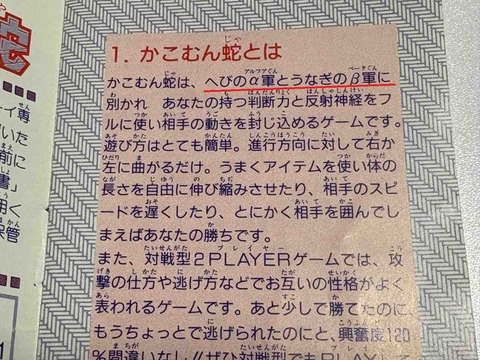 1. かこむん蛇とは
かこむん蛇は、へびのα軍とうなぎのβ軍に
別かれ あなたの持つ判断力と反射神経をフ
ルに使い相手の動きを封じ込めるゲームです。
遊び方はとても簡単。進行方向に対して右か
左に曲がるだけ。うまくアイテムを使い体の
長さを自由に伸び縮みさせたり、相手のスピ
ードを遅くしたり、とにかく相手を囲んでし
まえばあなたの勝ちです。
また、対戦型2PLAYERゲームでは、攻
撃の仕方や逃げ方などでお互いの性格がよく
表われるゲームです。あと少しで勝てたのに
もうちょっとで逃げられたのにと、興奮度120
%間違いなし!!ぜひ対戦型で